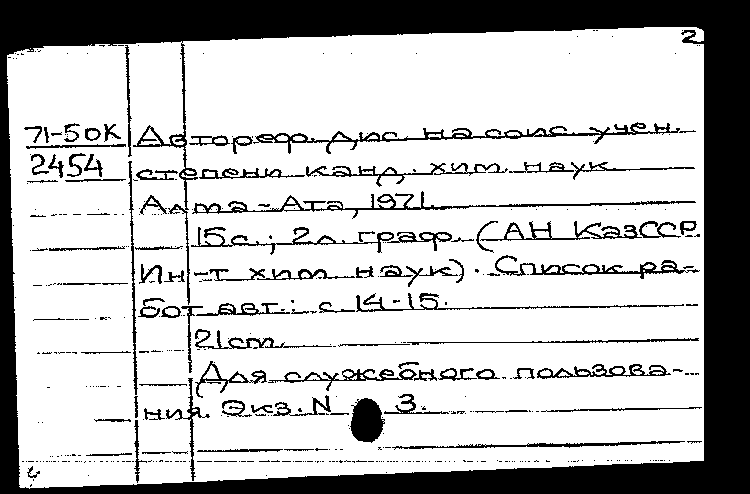 2
71-50K Автореф. дис. на соис. учен.
2454 степени канд. хим. наук
Алма-Ата, 1971.
15с.; 2л. граф. (АН КазССР.
Ин-т хим. наук). Список ра-
бот авт.: с. 14-15.
21cm.
Для служебного пользова-
ния. Экз. N 3.